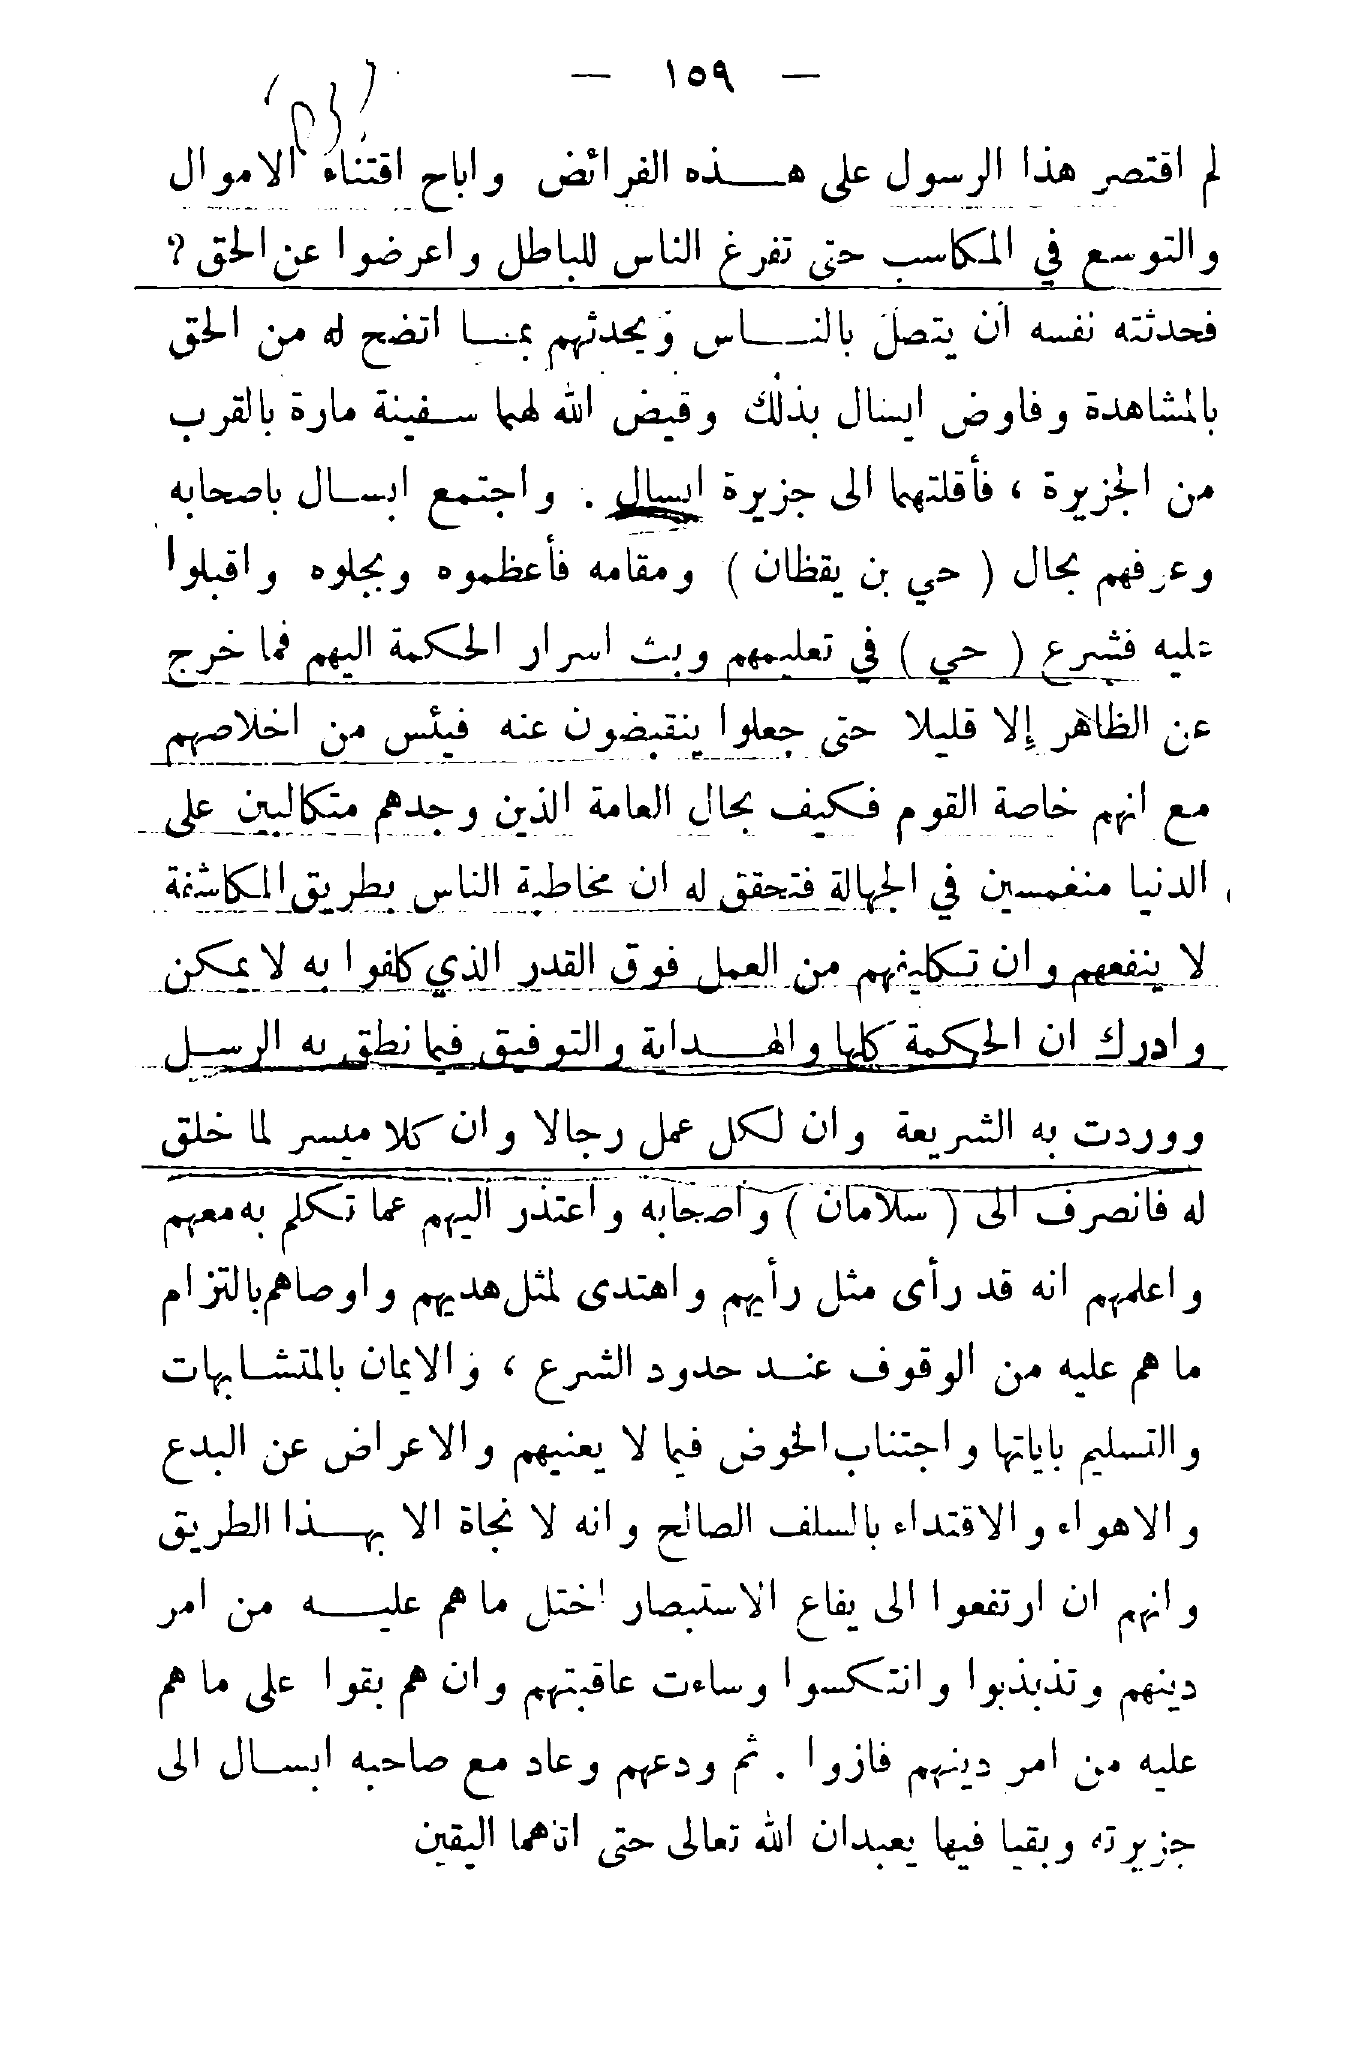 — ١٥٩ —
لم اقتصر هذا الرسول على هذه الفرائض واباح اقتناء الاموال
والتوسع في المكاسب حتى تفرغ الناس للباطل واعرضوا عن الحق ؟
فحدثته نفسه ان يتصل بالناس ويحدثهم بما اتضح له من الحق
بالمشاهدة وفاوض ابسال بذلك وقيض الله لهما سفينة مارة بالقرب
من الجزيرة ، فأقلتهما الى جزيرة ابسال . واجتمع ابسال باصحابه
وعرفهم بحال ( حي بن يقظان ) ومقامه فأعظموه وبجلوه واقبلوا
عليه فشرع ( حي ) في تعليمهم وبث اسرار الحكمة اليهم فما خرج
عن الظاهر إلا قليلا حتى جعلوا ينقبضون عنه فيئس من اخلاصهم
مع انهم خاصة القوم فكيف بحال العامة الذين وجدهم متكالبين على
الدنيا منغمسين في الجهالة فتحقق له ان مخاطبة الناس بطريق المكاشفة
لا ينفعهم وان تكليفهم من العمل فوق القدر الذي كلفوا به لا يمكن
وادرك ان الحكمة كلها والهداية والتوفيق فيما نطق به الرسل
ووردت به الشريعة وان لكل عمل رجالا وان كلا ميسر لما خلق
له فانصرف الى ( سلامان ) وأصحابه واعتذر اليهم عما تكلم به معهم
واعلمهم انه قد رأى مثل رأيهم واهتدى لمثل هديهم واوصاهم بالتزام
ما هم عليه من الوقوف عند حدود الشرع ، والايمان بالمتشابهات
والتسليم باياتها واجتناب الخوض فيما لا يعنيهم والاعراض عن البدع
والاهواء والاقتداء بالسلف الصالح وانه لا نجاة الا بهذا الطريق
وانهم ان ارتفعوا الى يفاع الاستبصار اختل ما هم عليه من امر
دينهم وتذبذبوا وانتكسوا وساءت عاقبتهم وان هم بقوا على ما هم
عليه من امر دينهم فازوا . ثم ودعهم وعاد مع صاحبه ابسال الى
جزيرته وبقيا فيها يعبدان الله تعالى حتى اتاهما اليقين